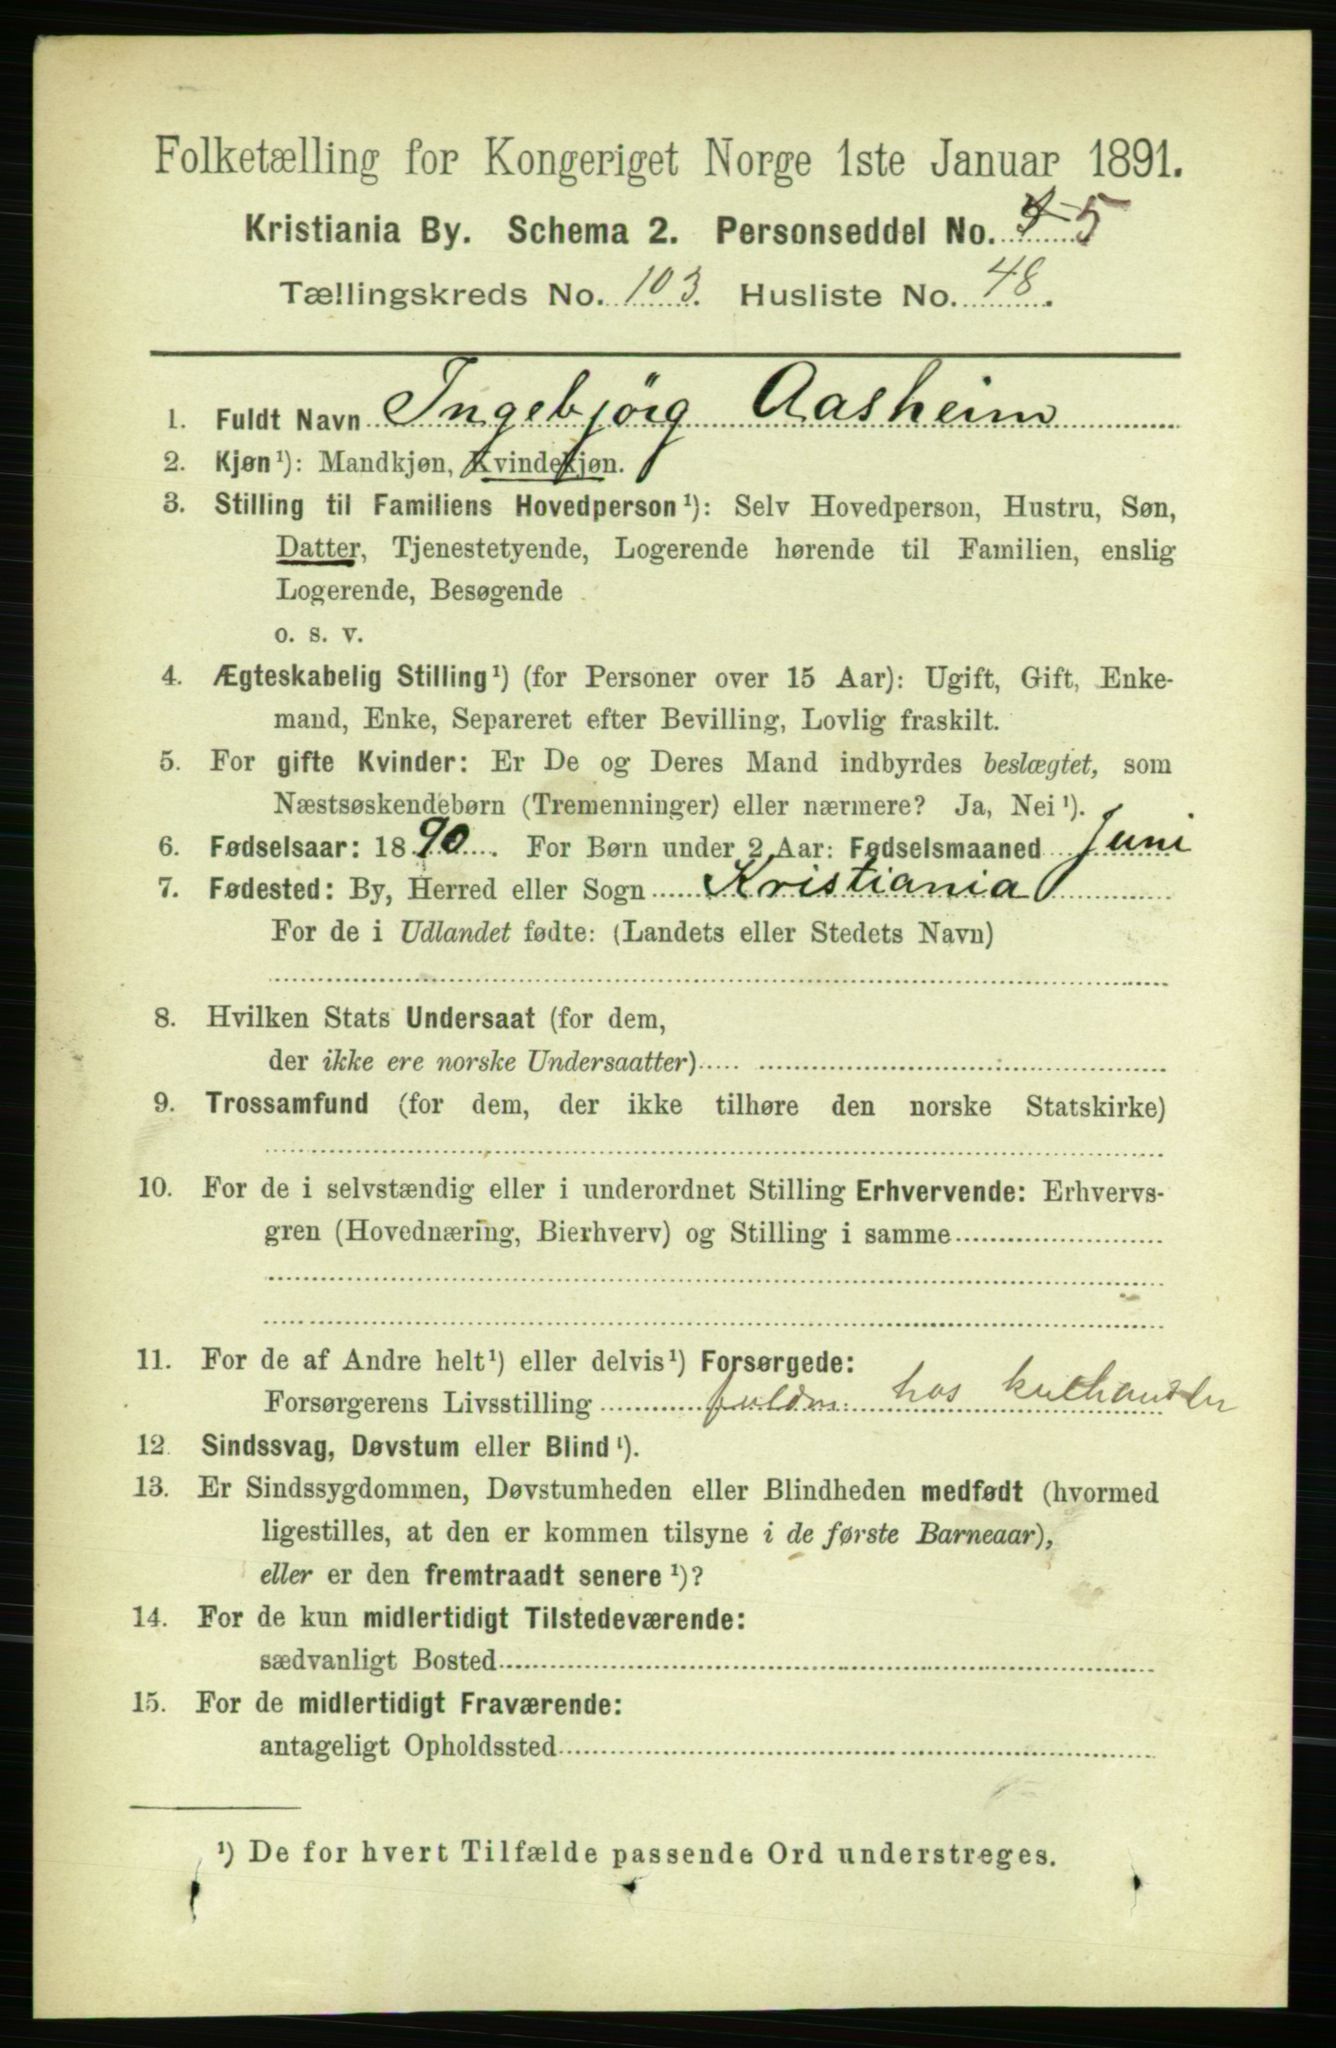 Folketælling for Kongeriget Norge 1ste Januar 1891.
Kristiania By. Schema 2. Personseddel No. 5
Tællingskreds No. 103. Husliste No. 48.
1. Fuldt Navn Ingebjörg Aasheim
2. Kjøn¹): Mandkjøn, Kvindekjøn.
3. Stilling til Familiens Hovedperson¹): Selv Hovedperson, Hustru, Søn,
Datter, Tjenestetyende, Logerende hørende til Familien, enslig
Logerende, Besøgende
o. s. v.
4. Ægteskabelig Stilling¹) (for Personer over 15 Aar): Ugift, Gift, Enke-
mand, Enke, Separeret efter Bevilling, Lovlig fraskilt.
5. For gifte Kvinder: Er De og Deres Mand indbyrdes beslægtet, som
Næstsøskendebørn (Tremenninger) eller nærmere? Ja, Nei¹).
6. Fødselsaar: 1890. For Børn under 2 Aar: Fødselsmaaned Juni
7. Fødested: By, Herred eller Sogn Kristiania
For de i Udlandet fødte: (Landets eller Stedets Navn)
8. Hvilken Stats Undersaat (for dem,
der ikke ere norske Undersaatter)
9. Trossamfund (for dem, der ikke tilhøre den norske Statskirke)
10. For de i selvstændig eller i underordnet Stilling Erhvervende: Erhvervs-
gren (Hovednæring, Bierhverv) og Stilling i samme
11. For de af Andre helt¹) eller delvis¹) Forsørgede:
Forsørgerens Livsstilling fuldm. hos kulhandler
12. Sindssvag, Døvstum eller Blind¹).
13. Er Sindssygdommen, Døvstumheden eller Blindheden medfødt (hvormed
ligestilles, at den er kommen tilsyne i de første Barneaar),
eller er den fremtraadt senere¹)?
14. For de kun midlertidigt Tilstedeværende:
sædvanligt Bosted
15. For de midlertidigt Fraværende:
antageligt Opholdssted
¹) De for hvert Tilfælde passende Ord understreges.